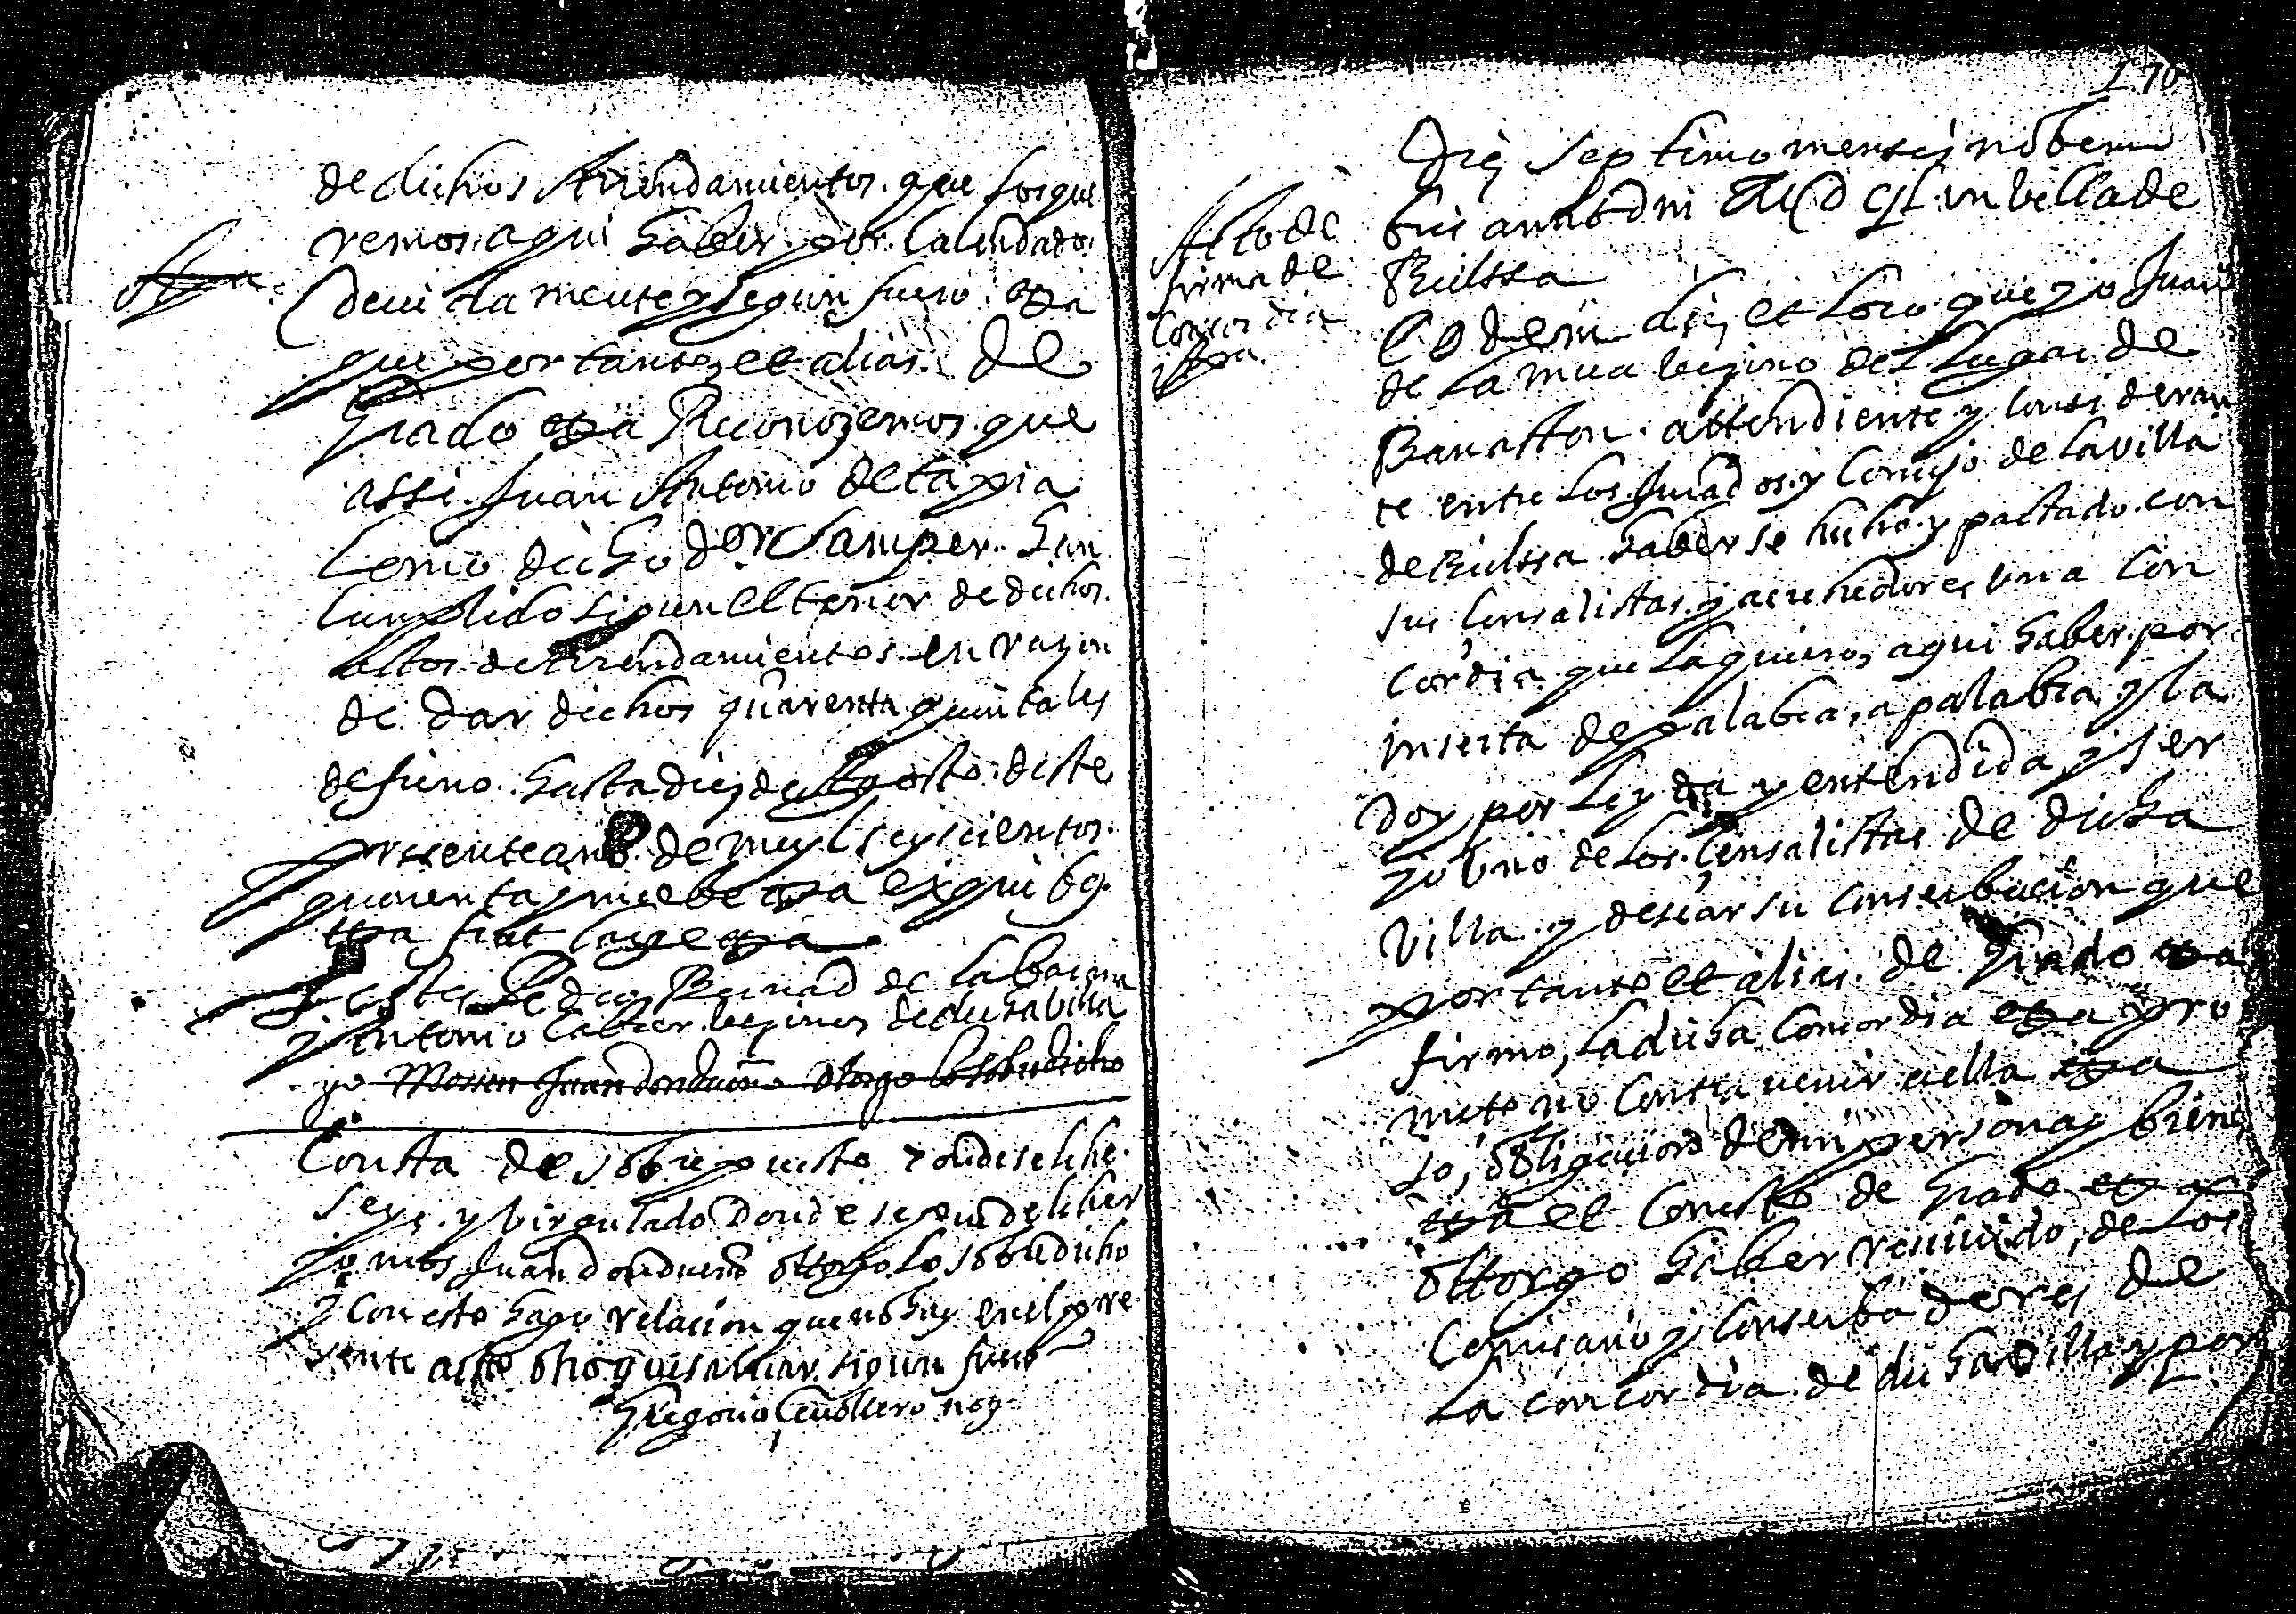 de dichos Arrendamientos que los que
remos aqui haber por Calendados
devidamente y segun fuero etta
que por tanto et alias de
Grado etta Reconozemos que
assi Juan Antonio de tapia
Como dicho dor Samper han
Cumplido sigun el tenor de dichos
actos de Arrendamientos en razon
de dar dichos quarenta quintales
de fieno hasta diez de Agosto deste
presente año de mil seyscientos
quarenta y nuebe etta ex quibg
etta fiat large etta
Testes Pedro Bernad de
y Antonio bezinos de dicha villa
yo Mossen Juan Otorgo lo sobredicho
Consta de sobrepuesto donde se lehe
seys y birgulado donde se leher
yo mos Juan otorgo lo sobredicho
y con esto hago relacion que no hay en el pre
sente acto otro que salvar sigun fuero
Gregorio noz
170
Acto de
firma de
Concordia
Die septimo mensis nobem
bris anno dni MDCL in villa de
Eodem die et loco que yo Juan
de la bezino del Lugar de
Banaston attendiente y consideran
te entre los Jurados y Concejo de la villa
de haberse hecho y pactado con
sus Censalistas y acrehedores una Con
cordia que la quiero aqui haber por
inserta de palabra a palabra y la
doy por leyda y entendida y ser
yo uno de los Censalistas de dicha
Villa y desear su conserbacion que
por tanto et alias de Grado etta
firmo la dicha Concordia etta pro
meto no contravenir a ella etta
so obligacion de mi persona y bienes
etta et con esto de Grado etta
ottorgo haber recivido de los
Comisario y Conserbadores de
la concordia de dicha villa y por